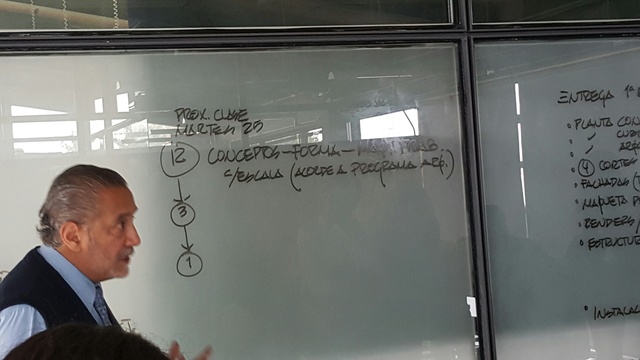 PROX. CLASE
MARTES 25
12 CONCEPTOS - FORMA -
C/ESCALA (ACORDE A PROGRAMA ARQ.)
3
1
ENTREGA 1ª
• PLANTA CON
" 
" ARQ
④ CORTES
• FACHADAS (
• MAQUETA
• RENDERS/
• ESTRUCTU
• INSTALAC